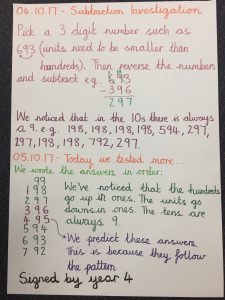 04.10.17 - Subtraction Investigation
Pick a 3 digit number such as
693 (units need to be smaller than
hundreds). Then reverse the numbers
and subtract e.g. 693
- 396
297
We noticed that in the 10s there is always
a 9. e.g. 198, 198, 198, 198, 594, 297,
197, 198, 198, 792, 297.
05.10.17 - Today we tested more...
We wrote the answers in order:
99
198
297
396
495
594
693
792
We've noticed that the hundreds
go up in ones. The units go
down in ones. The tens are
always 9.
We predict these answers.
This is because they follow
the pattern.
Signed by year 4